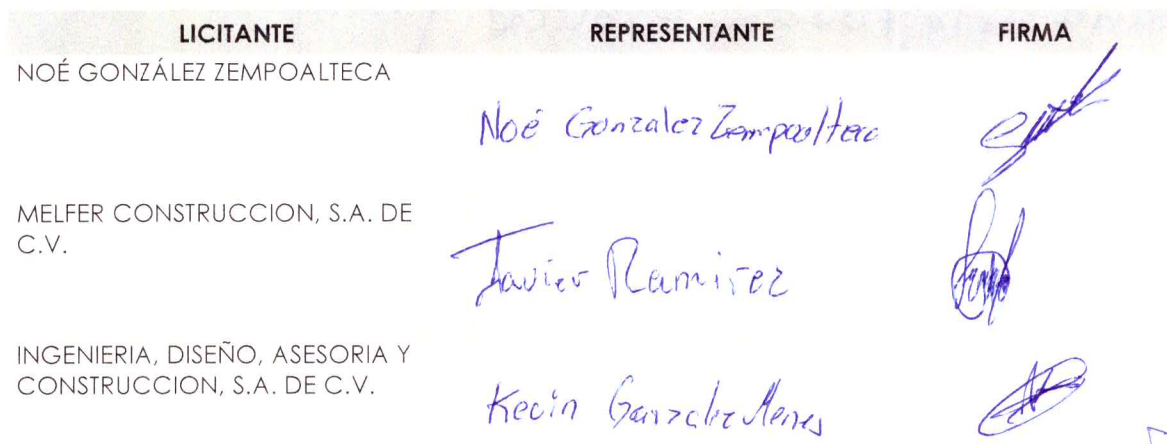 LICITANTE REPRESENTANTE FIRMA
NOÉ GONZÁLEZ ZEMPOALTECA
Noé Gonzalez Zempoalteca
MELFER CONSTRUCCION, S.A. DE
C.V.
Javier Ramirez
INGENIERIA, DISEÑO, ASESORIA Y
CONSTRUCCION, S.A. DE C.V.
Kevin Gonzalez